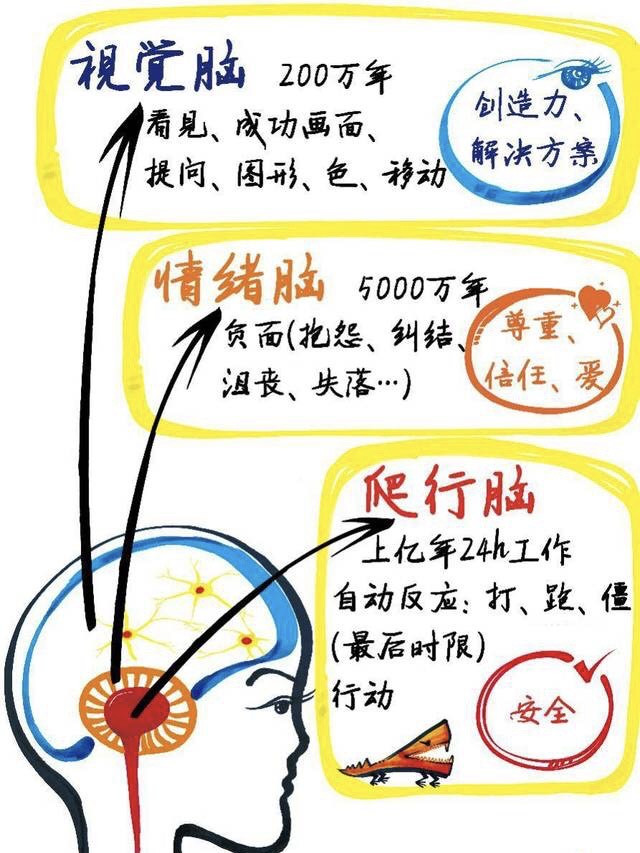 視覚脑 200万年
看見、成功画面、
提问、图形、色、移动
创造力、
解决方案
情绪脑 5000万年
负面(抱怨、纠结、
沮丧、失落…)
尊重、
信任、爱
爬行脑
上亿年24h工作
自动反应：打、跑、僵
(最后时限)
行动
安全